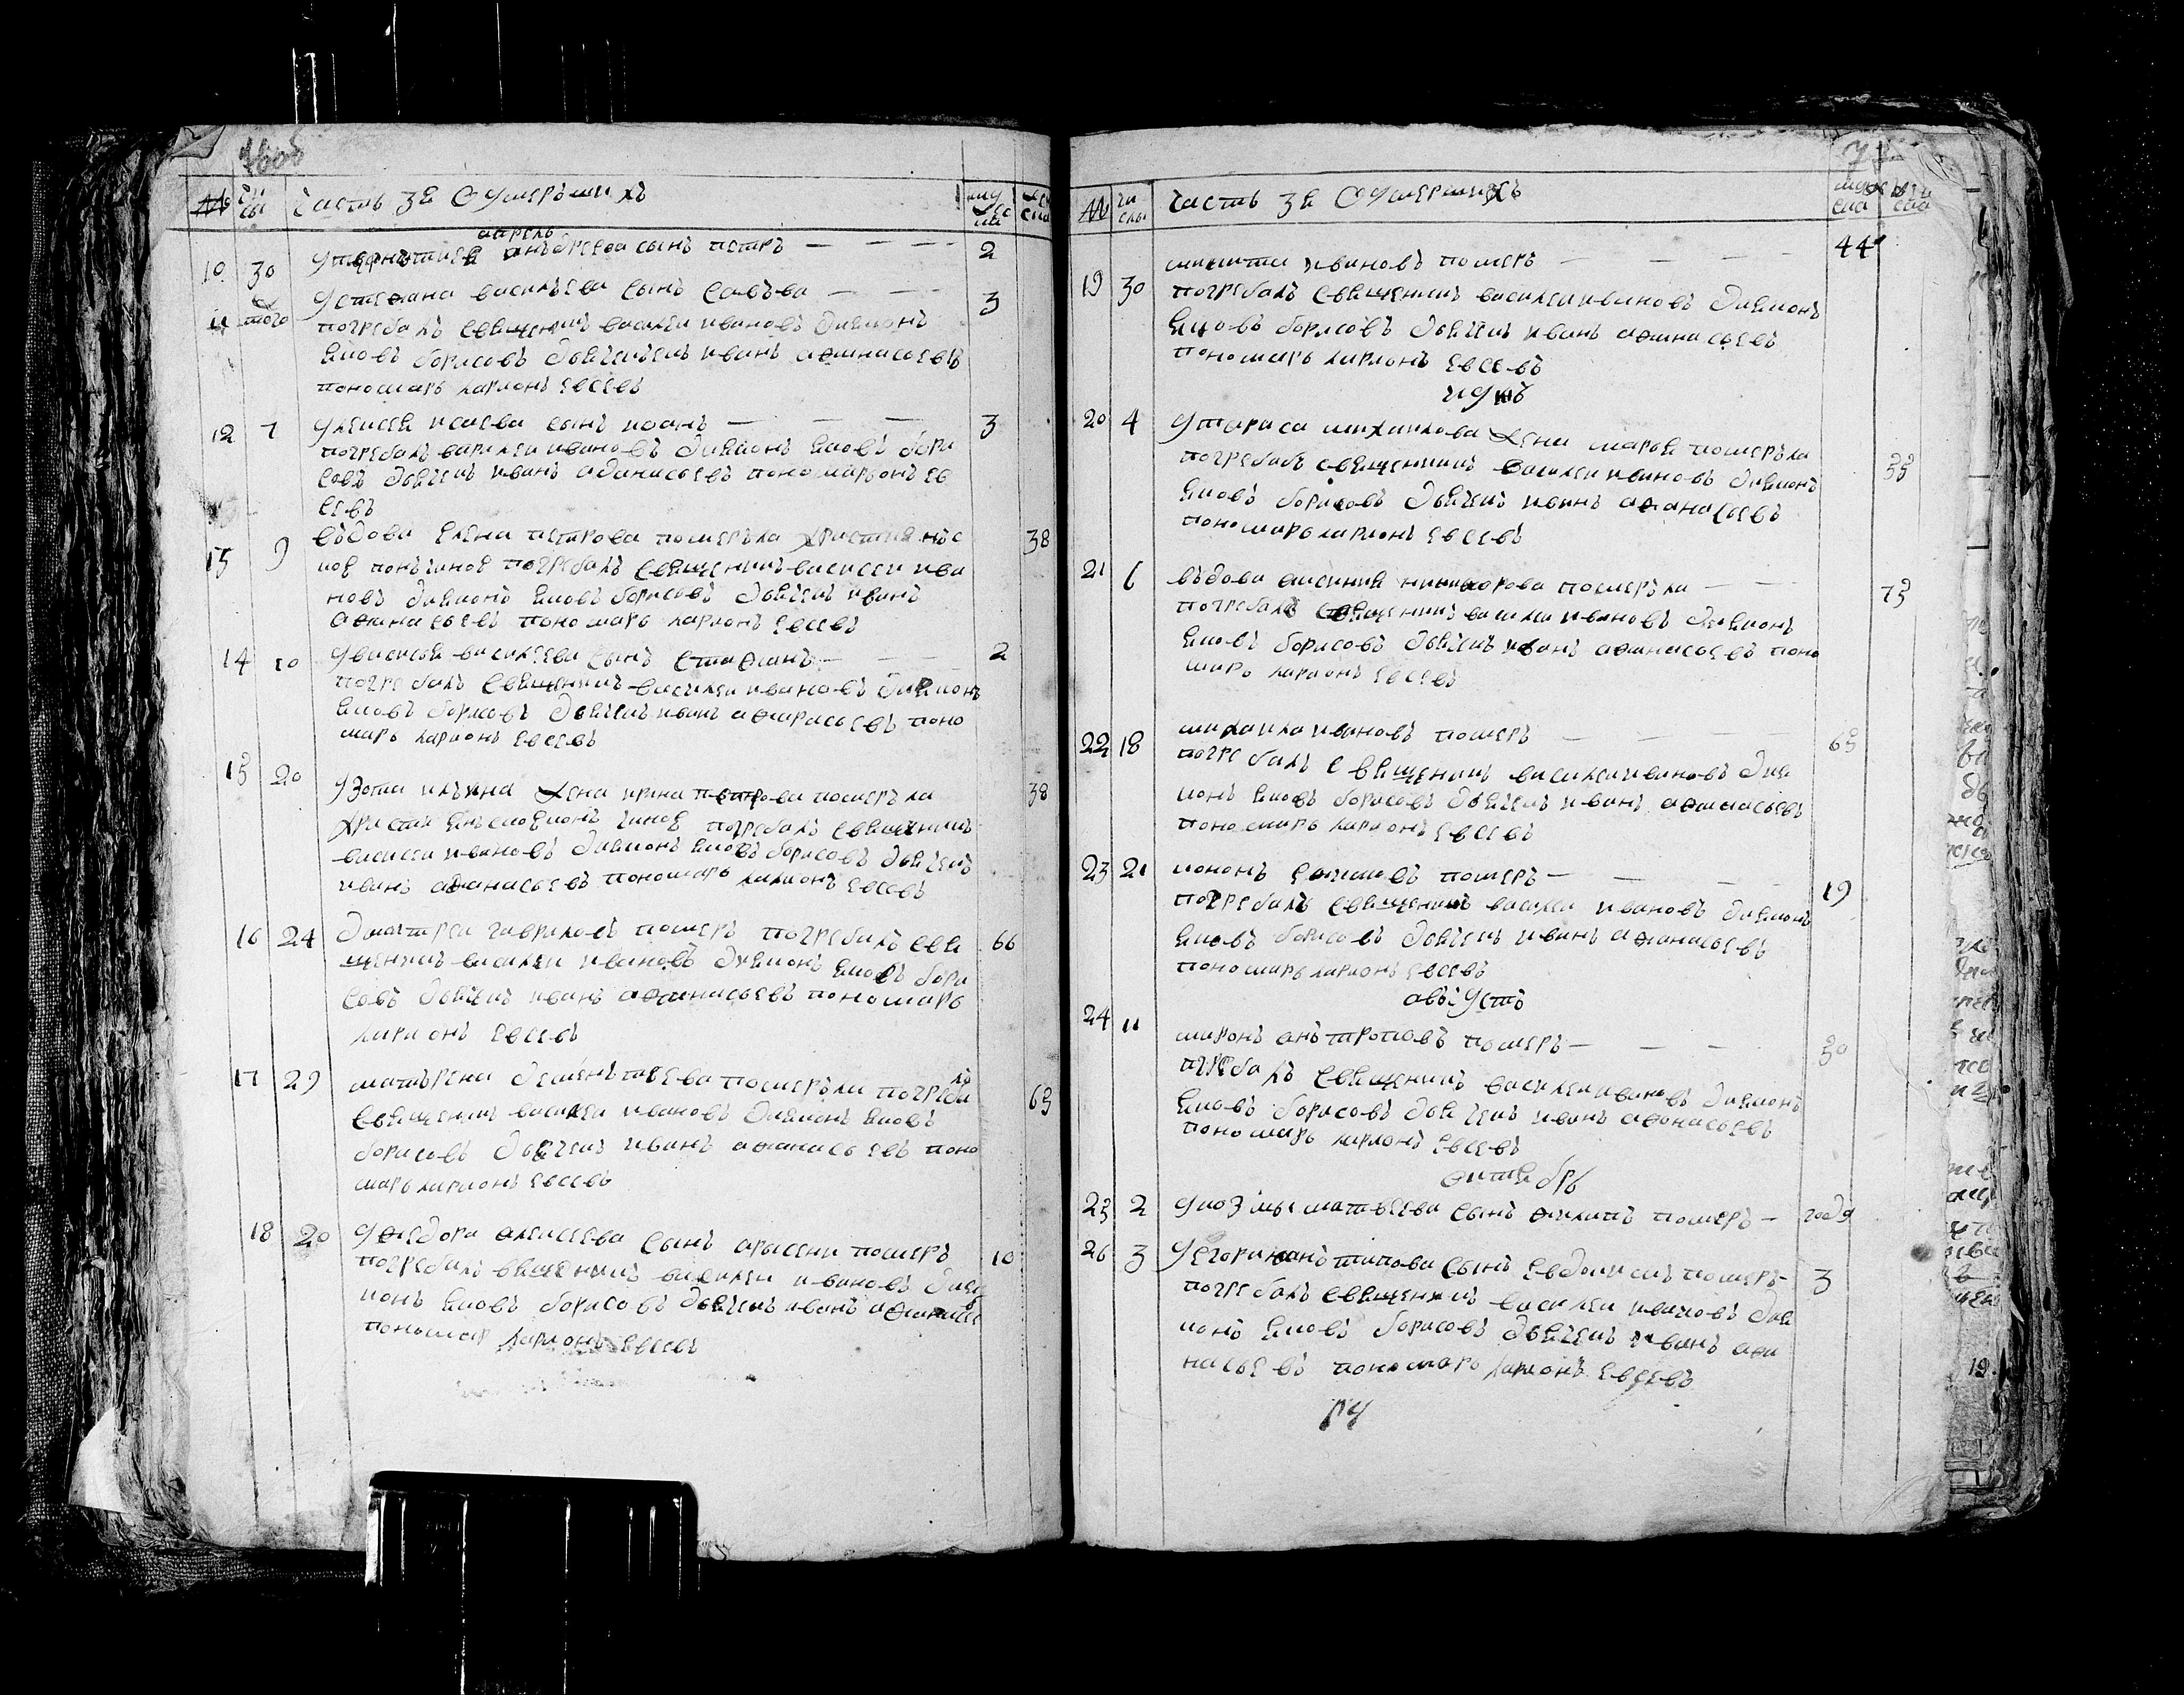 № чи слы часть 3я О умеръшихъ муж ска жен ска
апрель
10 30 у андреева сынъ петръ — — — 2
11 того устефана васильева сынъ савъва — — 3
погребалъ священникъ василеи ивановъ дияконъ
яковъ борисовъ дьячекъ иванъ афанасьевъ
пономарь ларионъ евсевъ
12 7 улексея исаева сынъ иоанъ — — — 3
погребалъ василеи ивановъ дияконъ яковъ бори
совъ дьячекъ иванъ афанасьевъ ев
севъ
13 9 въдова елена петрова померъла християнъс 38
кое погребалъ священникъ василеи ива
новъ дияконъ яковъ борисовъ дьячекъ иванъ
афанасьевъ пономарь ларионъ евсевъ
14 10 василева сынъ стефанъ — — 2
погребалъ священникъ василеи ивановъ дияконъ
яковъ борисовъ дьячекъ иванъ афанасьевъ поно
марь ларионъ евсевъ
15 20 узота илъина жена ирина петрова померъла 38
погребалъ священникъ
василеи ивановъ дияконъ яковъ борисовъ дьячекъ
иванъ афанасьевъ пономарь ларионъ евсевъ
16 24 дмитреи гавриловъ померъ погребалъ свя 66
щеникъ василеи ивановъ дияконъ яковъ бори
совъ дьячекъ иванъ афанасьевъ пономарь
ларионъ евсевъ
17 29 матърена деменътьева померъла погребалъ 65
священикъ василеи ивановъ дияконъ яковъ
борисовъ дьячекъ иванъ афанасьевъ поно
марь ларионъ евсевъ
18 20 уфедора алексеева сынъ арьсени померъ 10
погребалъ священникъ василеи ивановъ дия
конъ яковъ борисовъ дьячекъ иванъ
пономар ларионъ евсевъ
№ чи слы часть 3я О умершихъ муже ска жен ска
19 30 микита ивановъ померъ — — — 44
погребалъ священикъ василеи ивановъ дияконъ
яковъ борисовъ дьячекъ иванъ афанасьевъ
пономарь ларионъ евсевъ
20 4 утариса михаилова жена марья померъла 35
погребалъ священикъ василеи ивановъ дияконъ
яковъ борисовъ дьячекъ иванъ афанасьевъ
пономарь ларионъ евсевъ
21 6 въдова аксиния никифорова померъла — — 75
погребалъ священикъ василеи ивановъ дияконъ
яковъ борисовъ дьячекъ иванъ афанасьевъ поно
марь ларионъ евсевъ
22 18 михаила ивановъ померъ — — — 65
погребалъ священикъ василеи ивановъ дия
конъ яковъ борисовъ дьячекъ иванъ афанасьевъ
пономарь ларионъ евсевъ
23 21 померъ — — — 19
погребалъ священикъ василеи ивановъ дияконъ
яковъ борисовъ дьячекъ иванъ афанасьевъ
пономарь ларионъ евсевъ
авъгустъ
24 11 миронъ анътроповъ померъ — — — 50
погребалъ священикъ василеи ивановъ дияконъ
яковъ борисовъ дьячекъ иванъ афонасьевъ
пономарь ларионъ евсевъ
октябрь
25 2 укозмы матвеева сынъ филипъ померъ — году
26 3 уегори анътипова сынъ евдокимъ померъ 3
погребалъ священикъ василеи ивановъ дия
конъ яковъ борисовъ дьячекъ иванъ афа
насьевъ пономарь ларионъ евсевъ